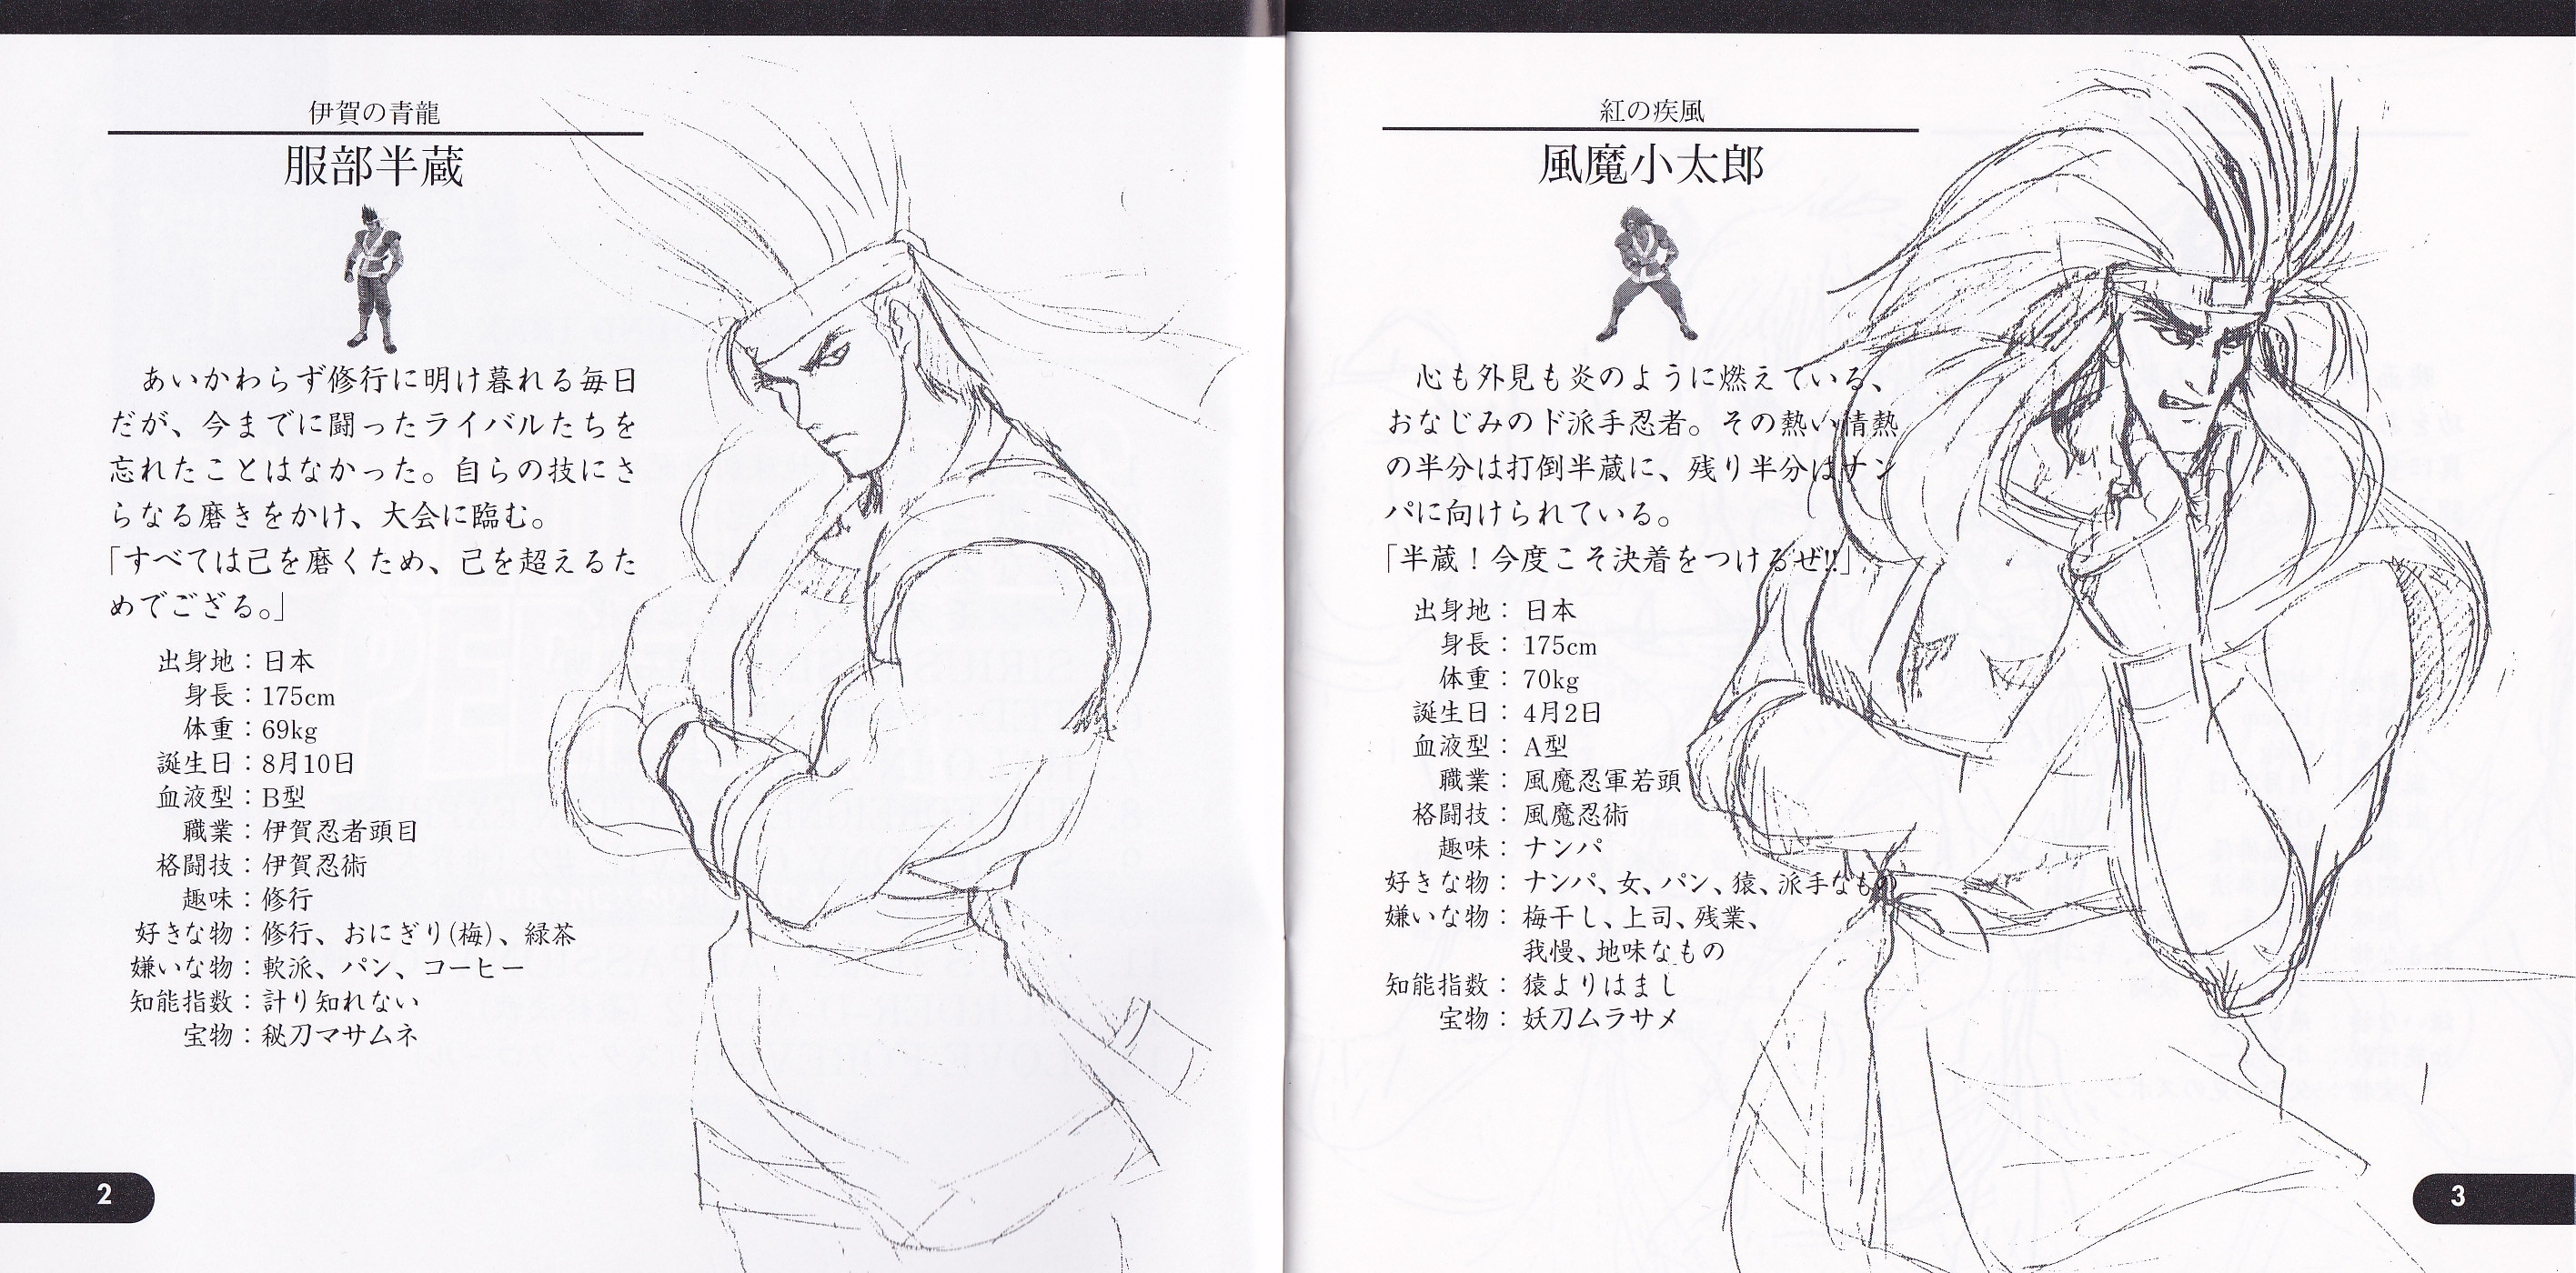 伊賀の青龍
服部半蔵
あいかわらず修行に明け暮れる毎日
だが、今までに闘ったライバルたちを
忘れたことはなかった。自らの技にさ
らなる磨きをかけ、大会に臨む。
「すべては己を磨くため、己を超えるた
めでござる。」
出身地：日本
身長：175cm
体重：69kg
誕生日：8月10日
血液型：B型
職業：伊賀忍者頭目
格闘技：伊賀忍術
趣味：修行
好きな物：修行、おにぎり(梅)、緑茶
嫌いな物：軟派、パン、コーヒー
知能指数：計り知れない
宝物：秘刀マサムネ
2
紅の疾風
風魔小太郎
心も外見も炎のように燃えている、
おなじみのド派手忍者。その熱い情熱
の半分は打倒半蔵に、残り半分はナン
パに向けられている。
「半蔵！今度こそ決着をつけるぜ!!」
出身地：日本
身長：175cm
体重：70kg
誕生日：4月2日
血液型：A型
職業：風魔忍軍若頭
格闘技：風魔忍術
趣味：ナンパ
好きな物：ナンパ、女、パン、猿、派手なもの
嫌いな物：梅干し、上司、残業、
我慢、地味なもの
知能指数：猿よりはまし
宝物：妖刀ムラサメ
3